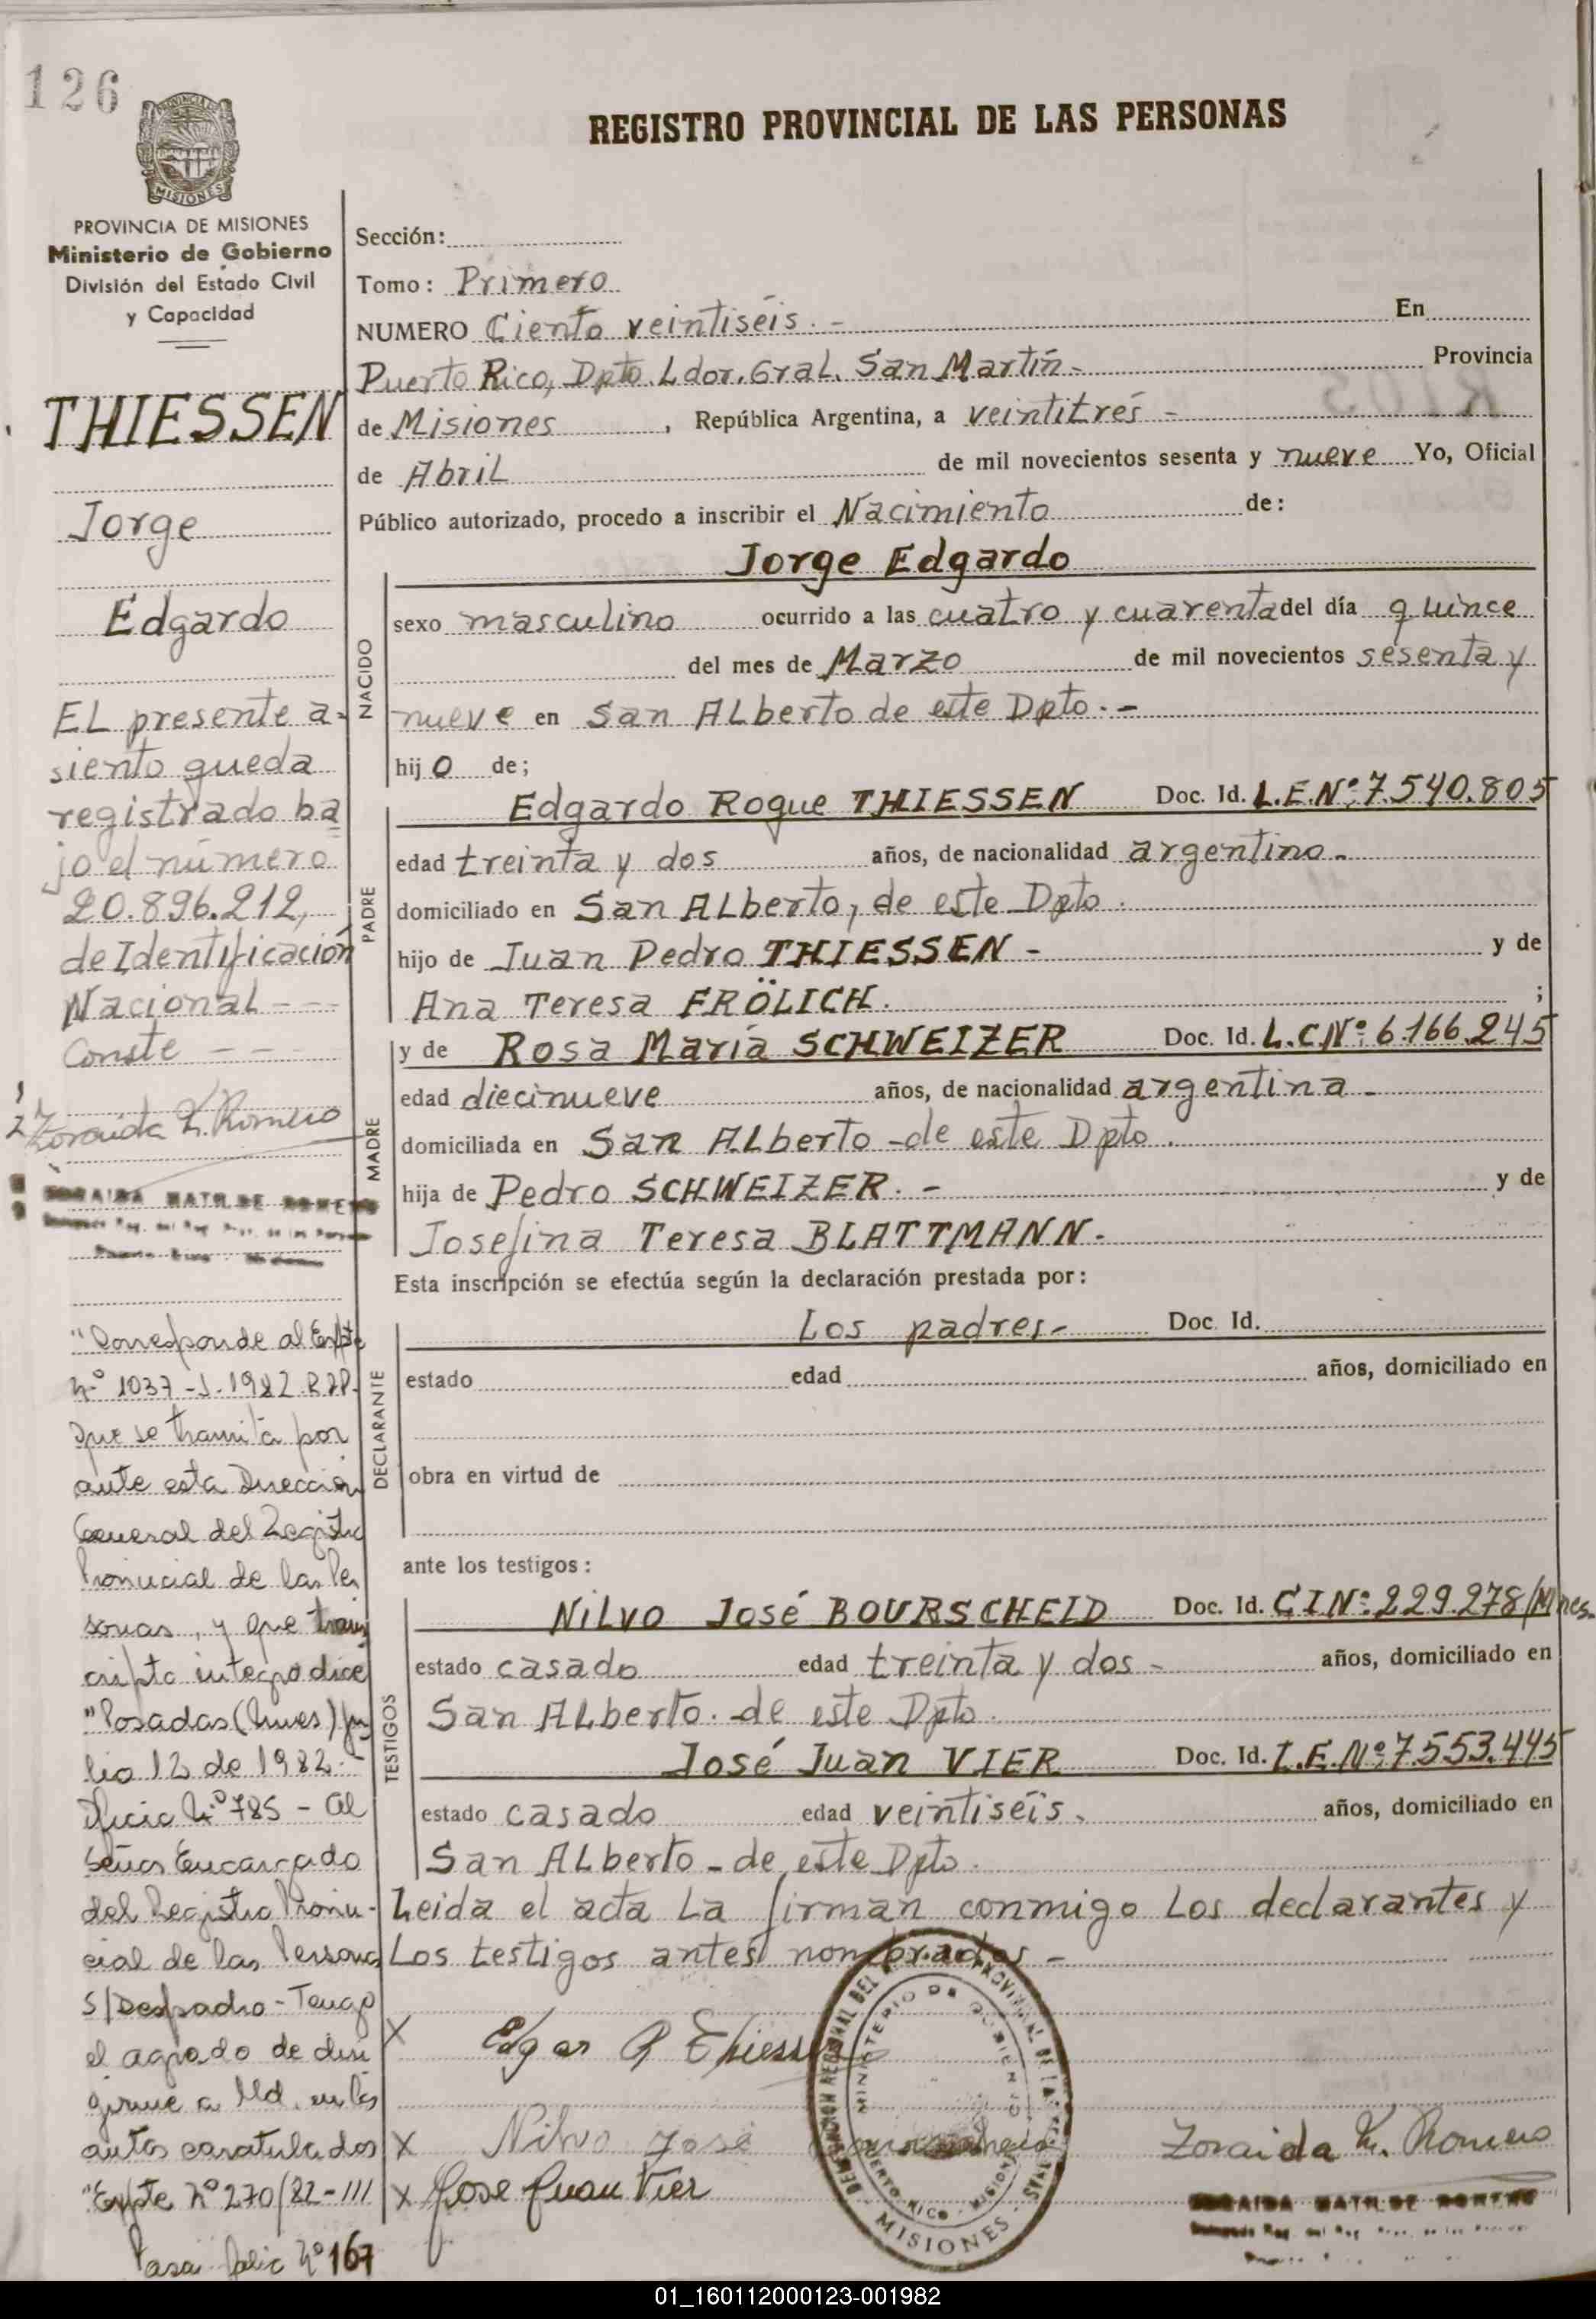 126
REGISTRO PROVINCIAL DE LAS PERSONAS
MISIONES
PROVINCIA DE MISIONES
Ministerio de Gobierno
División del Estado Civil
y Capacidad
THIESSEN
Jorge
Edgardo
EL presente a-
siento queda
registrado ba
jo el número
20.896.212,
de Identificación
Nacional - - -
Conste - -
Zoraida M. Romero
ZORAIDA MATILDE ROMERO
"Corresponde al Expte
Nº 1037-J-1982 R.P.P.
que se tramita por
ante esta Dirección
General del Registro
Provincial de las Per
sonas, y que trans
cripto integro dice
"Posadas (Mnes) Ju
lio 12 de 1982.-
Oficio Nº 785 - Al
Señor Encargado
del Registro Provin-
cial de las Personas
S/Despacho - Tengo
el agrado de diri
girme a Ud. en los
autos caratulados
"Expte Nº 270/82-III
Pasa folio Nº 167
Sección:
Tomo: Primero
NUMERO Ciento veintiséis. - En
Puerto Rico, Dpto. Ldor. Gral. San Martín - Provincia
de Misiones, República Argentina, a veintitrés -
de Abril de mil novecientos sesenta y nueve Yo, Oficial
Público autorizado, procedo a inscribir el Nacimiento de:
Jorge Edgardo
NACIDO
sexo masculino ocurrido a las cuatro y cuarenta del día quince
del mes de Marzo de mil novecientos sesenta y
nueve en San ALberto de este Dpto. -
hijo de;
PADRE
Edgardo Roque THIESSEN Doc. Id. L.E.Nº:7.540.805
edad treinta y dos años, de nacionalidad argentino -
domiciliado en San ALberto, de este Dpto.
hijo de Juan Pedro THIESSEN - y de
Ana Teresa FRÖLICH. ;
MADRE
y de Rosa María SCHWEIZER Doc. Id. L.C.Nº: 6.166.245
edad diecinueve años, de nacionalidad argentina -
domiciliada en San ALberto - de este Dpto.
hija de Pedro SCHWEIZER. - y de
Josefina Teresa BLATTMANN.
Esta inscripción se efectúa según la declaración prestada por:
DECLARANTE
Los padres - Doc. Id.
estado edad años, domiciliado en
obra en virtud de
ante los testigos:
TESTIGOS
NiLvo José BOURSCHEID Doc. Id. C.I.Nº: 229.278/Mnes.
estado casado edad treinta y dos - años, domiciliado en
San ALberto. de este Dpto.
José Juan VIER Doc. Id. L.E.Nº:7.553.445
estado casado edad veintiséis. años, domiciliado en
San ALberto - de este Dpto.
Leida el acta La firman conmigo Los declarantes y
Los testigos antes nombrados -
X Edgar R Thiessen
X Nilvo José Bourscheid
X Jose Juan Vier
MINISTERIO DE GOBIERNO
PUERTO RICO - MISIONES
MISIONES
Zoraida M. Romero
ZORAIDA MATILDE ROMERO
01_160112000123-001982